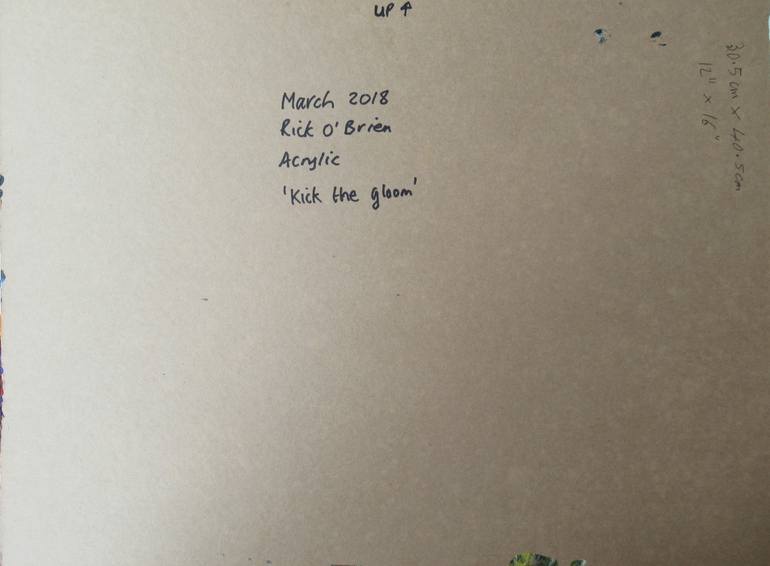 UP ↑
March 2018
Rick O'Brien
Acrylic
'Kick the gloom'
30.5cm x 40.5cm
12" x 16"